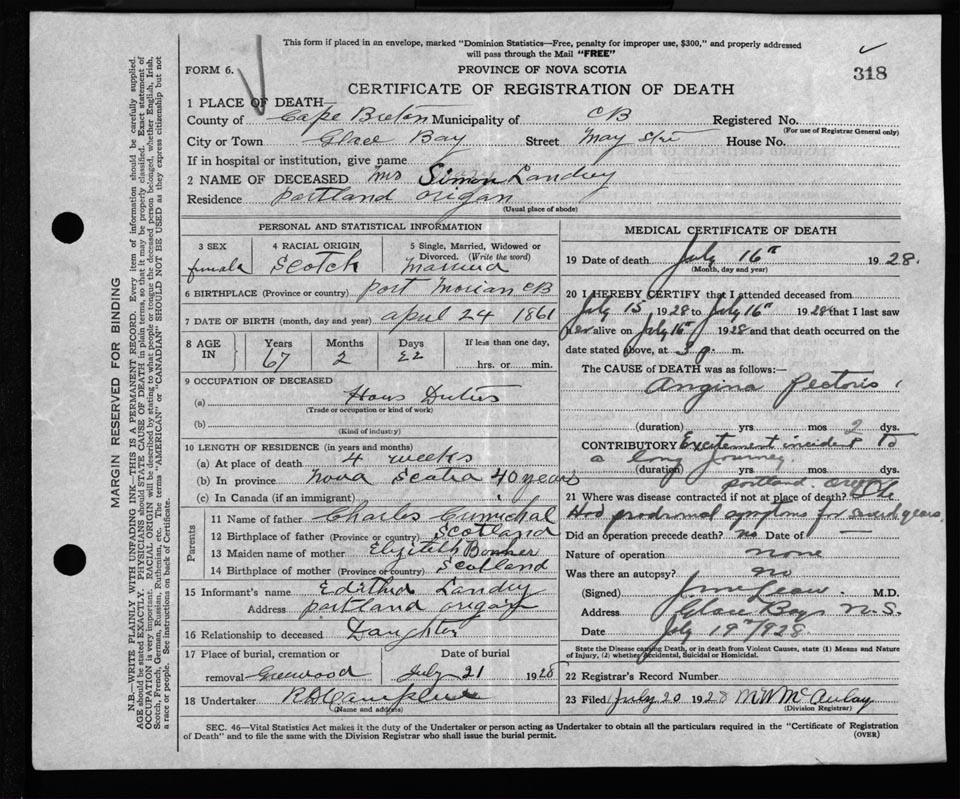 This form if placed in an envelope, marked "Dominion Statistics—Free, penalty for improper use, $300," and properly addressed
will pass through the Mail "FREE"
FORM 6.
PROVINCE OF NOVA SCOTIA
318
CERTIFICATE OF REGISTRATION OF DEATH
1 PLACE OF DEATH
County of Cape Breton Municipality of CB Registered No.
(For use of Registrar General only)
City or Town Glace Bay Street May Str House No.
If in hospital or institution, give name
2 NAME OF DECEASED Mrs Simon Landry
Residence Portland Origan
(Usual place of abode)
PERSONAL AND STATISTICAL INFORMATION
3 SEX female
4 RACIAL ORIGIN Scotch
5 Single, Married, Widowed or Divorced. (Write the word) Married
6 BIRTHPLACE (Province or country) Port Morian CB
7 DATE OF BIRTH (month, day and year) april 24 1861
8 AGE IN Years 67 Months 2 Days 22 If less than one day, hrs. or min.
9 OCCUPATION OF DECEASED
(a) Hous Duties
(Trade or occupation or kind of work)
(b)
(Kind of industry)
10 LENGTH OF RESIDENCE (in years and months)
(a) At place of death 4 weeks
(b) In province Nova Scotia 40 years
(c) In Canada (if an immigrant)
Parents
11 Name of father Charles
12 Birthplace of father (Province or country) Scotland
13 Maiden name of mother Elyzibeth Bonner
14 Birthplace of mother (Province or country) Scotland
15 Informant's name Editha Landry
Address portland origan
16 Relationship to deceased Daughter
17 Place of burial, cremation or removal Greenwood
Date of burial July 21 1928
18 Undertaker
(Name and address)
MEDICAL CERTIFICATE OF DEATH
19 Date of death July 16th 1928.
(Month, day and year)
20 I HEREBY CERTIFY that I attended deceased from
July 15 1928 to July 16th 1928 that I last saw
her alive on July 16th 1928 and that death occurred on the
date stated above, at 3 p. m.
The CAUSE of DEATH was as follows:—
Angina Pectoris
(duration) yrs mos 2 dys.
CONTRIBUTORY Excitement incident to
a long journey.
(duration) yrs. mos. dys.
portland. Ore
21 Where was disease contracted if not at place of death? She
Had prodromal symptoms for several years.
Did an operation precede death? no Date of —
Nature of operation none
Was there an autopsy? no
(Signed) M.D.
Address Glace Bay N.S.
Date July 19th 1928.
State the Disease causing Death, or in death from Violent Causes, state (1) Means and Nature
of Injury, (2) whether Accidental, Suicidal or Homicidal.
22 Registrar's Record Number
23 Filed July 20 1928 M W McAulay
(Division Registrar)
SEC. 46—Vital Statistics Act makes it the duty of the Undertaker or person acting as Undertaker to obtain all the particulars required in the "Certificate of Registration
of Death" and to file the same with the Division Registrar who shall issue the burial permit.
(OVER)
MARGIN RESERVED FOR BINDING
N.B.—WRITE PLAINLY WITH UNFADING INK—THIS IS A PERMANENT RECORD. Every item of information should be carefully supplied.
AGE should be stated EXACTLY. PHYSICIANS should STATE CAUSE OF DEATH in plain terms, so that it may be properly classified. Exact statement of
OCCUPATION is very important. RACIAL ORIGIN will be described by stating to what people or tongue the deceased person belonged, whether English, Irish,
Scotch, French, German, Russian, Ruthenian, etc. The terms "AMERICAN" or "CANADIAN" SHOULD NOT BE USED as they express citizenship but not
a race or people. See instructions on back of Certificate.